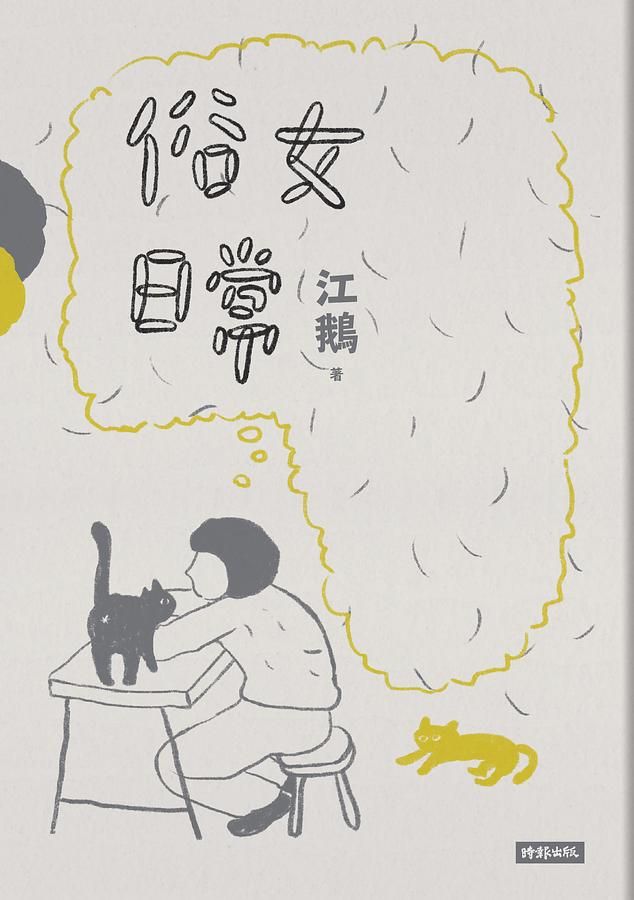 俗女
日常
江鵝
著
時報出版